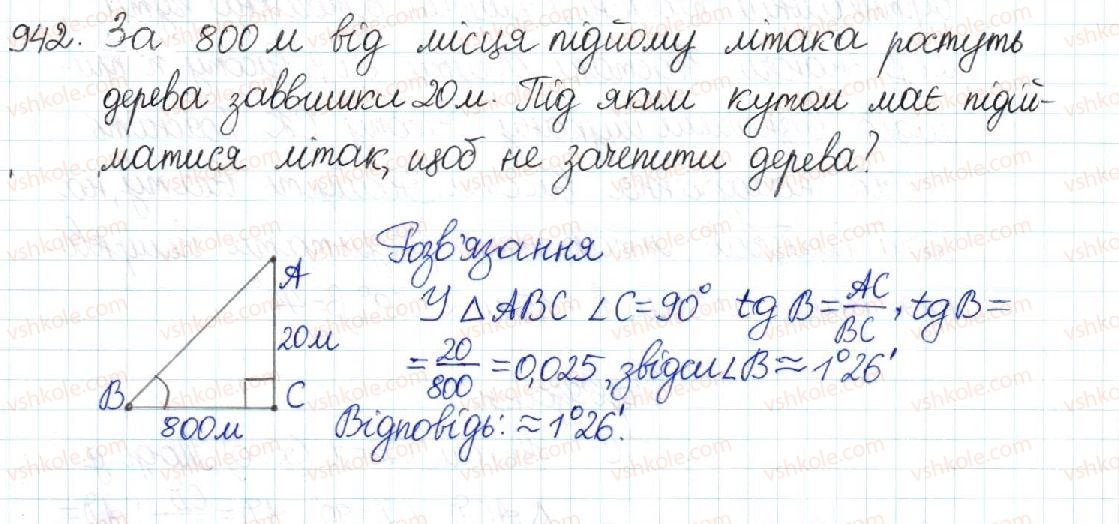 942. За 800 м від місця підйому літака ростуть
дерева заввишки 20 м. Під яким кутом має підій-
матися літак, щоб не зачепити дерева?
Розв'язання
У △ABC ∠C = 90° tg B = AC/BC, tg B =
= 20/800 = 0,025, звідси ∠B ≈ 1°26'
Відповідь: ≈ 1°26'.
A
20 м
B
C
800 м
vshkole.com